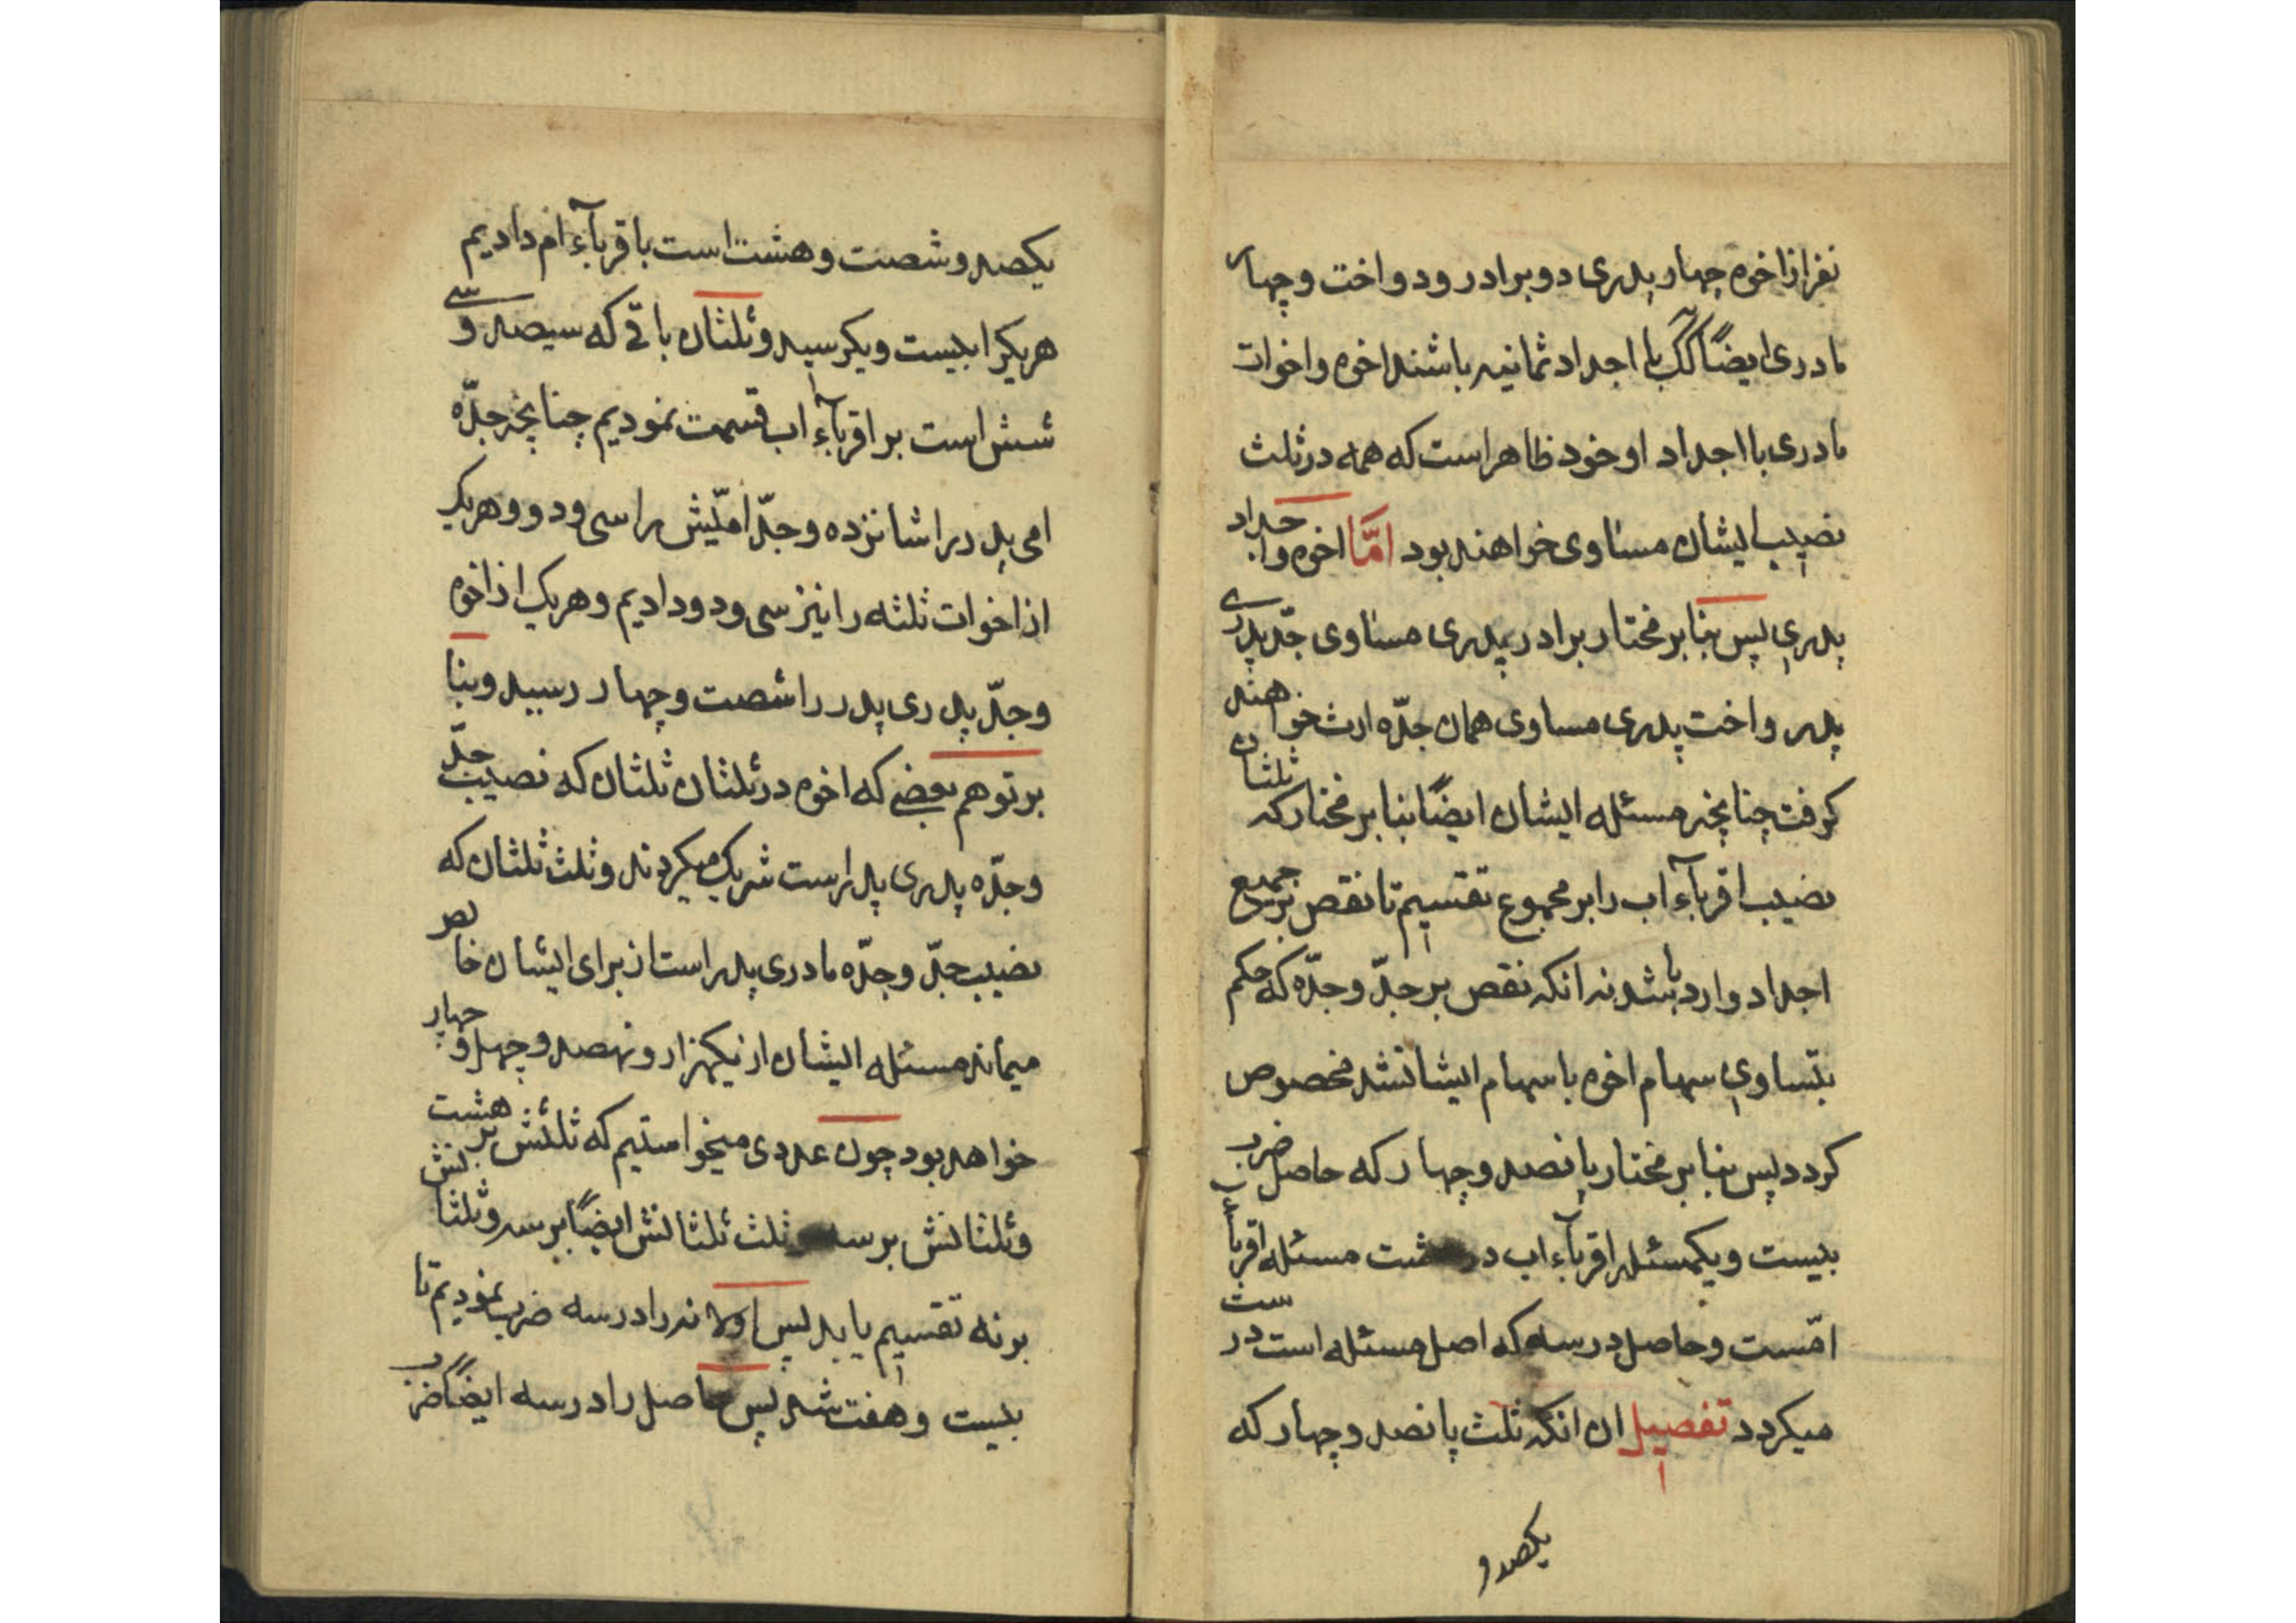 نفر از اخوه چهار پدری دو برادر و دو اخت و چهار
مادری ایضا کک با اجداد ثمانیه باشند اخوه و اخوات
مادری با اجداد او خود ظاهر است که همه در ثلث
نصیب ایشان مساوی خواهند بود امّا اخوه و اجداد
پدری پس بنا بر مختار برادر پدری مساوی جدّ پدری
پدر و اخت پدری مساوی همان جدّه ارث خواهند
کرفت چنانچه مسئله ایشان ایضًا بنا بر مختار که ثلثان
نصیب اقربآء اب را بر مجموع تقسیم تا نقص بر جمیع
اجداد وارد باشد نه انکه نقص بر جدّ و جدّه که حکم
بتساوی سهام اخوه با سهام ایشانشد مخصوص
کردد پس بنا بر مختار پانصد و چهار که حاصل ضرب
بیست و یکمسئله اقربآء اب در هشت مسئله اقربآء
امّست و حاصل در سه که اصل مسئله است درست
میکردد تفصیل ان انکه ثلث پانصد و چهار که
یکصد و
یکصد و شصت و هشت است باقربآء ام دادیم
هر یکرا بیست و یکرسید و ثلثان باقی که سیصد و سی
شش است بر اقربآء اب قسمت نمودیم چنانچه جدّه
امی پدر را شانزده و جدّ امّیش را سی و دو و هر یک
از اخوات ثلثه را نیز سی و دو دادیم و هر یک از اخوه
و جدّ پدری پدر را شصت و چهار رسید و بنا
بر توهم بعضی که اخوه در ثلثان ثلثان که نصیب جدّ
و جدّه پدری پدر است شریک میکردند و ثلث ثلثان که
نصیب جدّ و جدّه مادری پدر است از برای ایشان خاص
میماند مسئله ایشان از یکهزار و نهصد و چهل و چهار
خواهد بود چون عددی میخواستیم که ثلثش بر هشت
و ثلثانش بر سه و ثلث ثلثانش ایضًا بر سه و ثلثانش
بر نه تقسیم یابد پس اولا نه را در سه ضرب نمودیم تا
بیست و هفت شد پس حاصل را در سه ایضًا ضرب